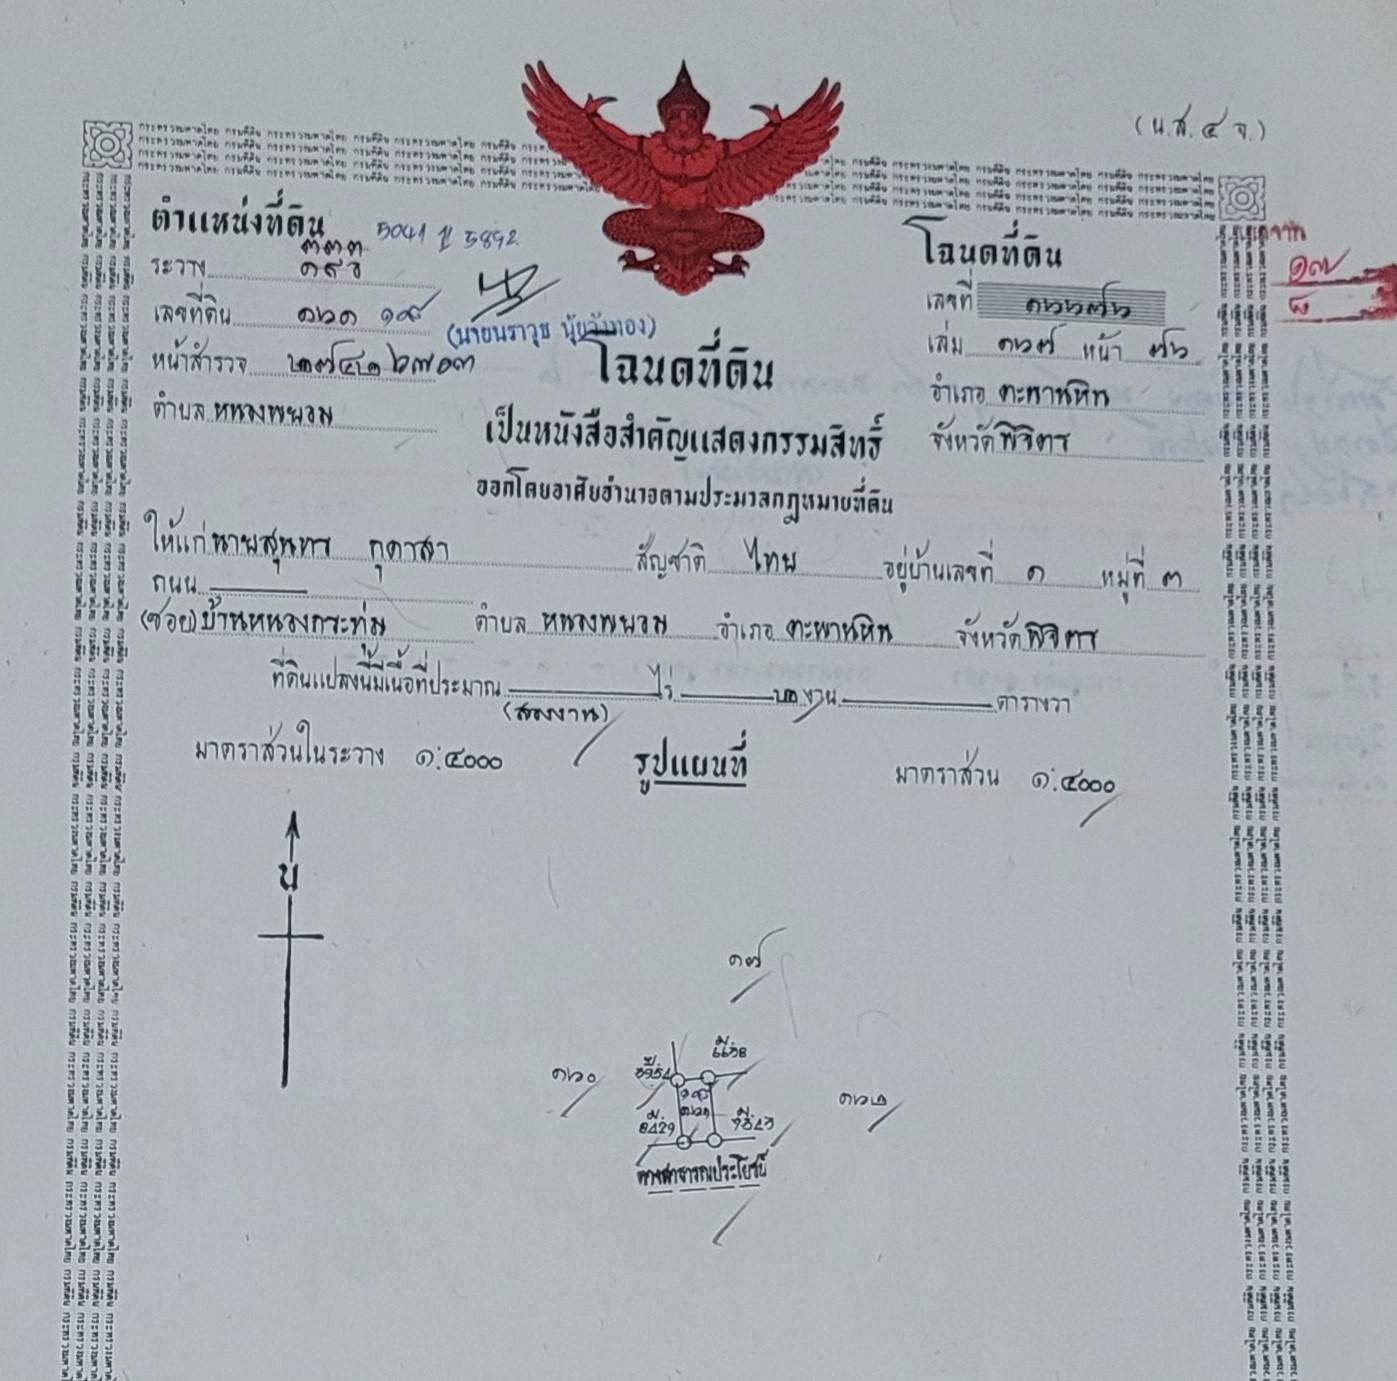 (น.ส. ๔ จ.)
ตำแหน่งที่ดิน 5041 ๆ 5892
ระวาง
เลขที่ดิน ๑๒๑ ๑๙
หน้าสำรวจ ๒๗๐๓
ตำบล หนองพยอม
โฉนดที่ดิน
เลขที่ ๑๒๒๗๒
เล่ม ๑๒๗ หน้า ๗๒
อำเภอ ตะพานหิน
จังหวัด พิจิตร
๑๗
๘
โฉนดที่ดิน
เป็นหนังสือสำคัญแสดงกรรมสิทธิ์
ออกโดยอาศัยอำนาจตามประมวลกฎหมายที่ดิน
ให้แก่ นายสุนทร กุดาลา สัญชาติ ไทย อยู่บ้านเลขที่ ๑ หมู่ที่ ๓
ถนน
(ซอย) บ้านหนองกระทุ่ม ตำบล หนองพยอม อำเภอ ตะพานหิน จังหวัด พิจิตร
ที่ดินแปลงนี้มีเนื้อที่ประมาณ ไร่ ๒ งาน ตารางวา
(สองงาน)
มาตราส่วนในระวาง ๑:๔๐๐๐ รูปแผนที่ มาตราส่วน ๑:๔๐๐๐
น
๑๗
๑๒๐
๑๒๑
๑๒๒
ทางสาธารณประโยชน์